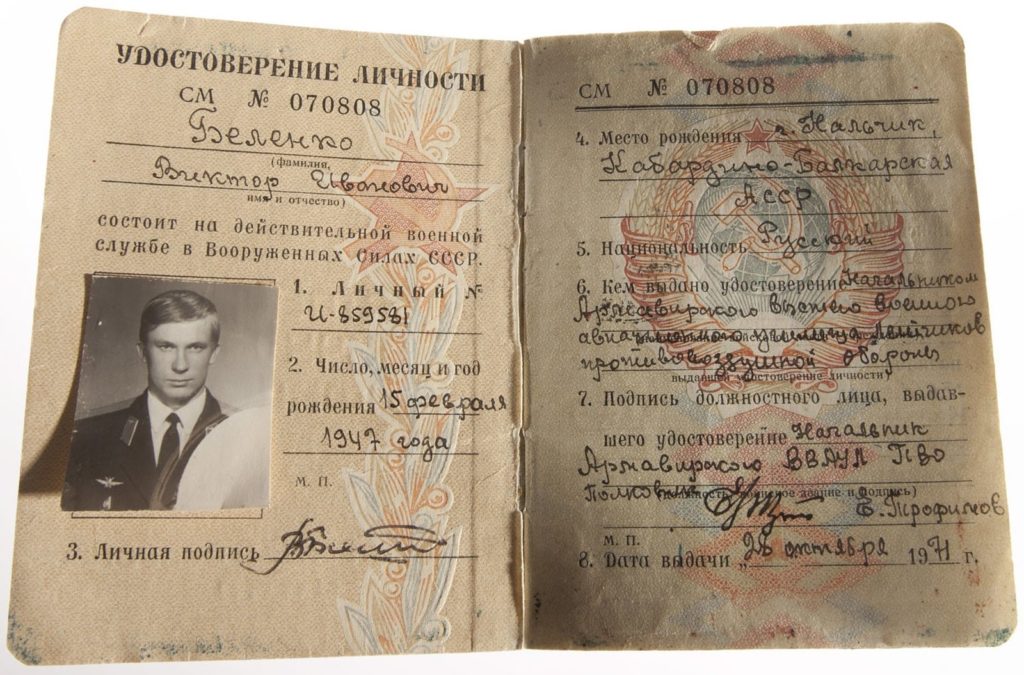 УДОСТОВЕРЕНИЕ ЛИЧНОСТИ
СМ № 070808
Беленко
(фамилия,
Виктор Иванович
имя и отчество)
состоит на действительной военной
службе в Вооруженных Силах СССР.
1. Личный №
И-859581
2. Число, месяц и год
рождения 15 февраля
1947 года
М. П.
3. Личная подпись
СМ № 070808
4. Место рождения г. Нальчик,
Кабардино-Балкарская
АССР
5. Национальность Русский
6. Кем выдано удостоверение Начальником
Армавирского высшего военного
авиационного училища летчиков
противовоздушной обороны
выдавшей удостоверение личности)
7. Подпись должностного лица, выдав-
шего удостоверение Начальник
Армавирского ВВАУЛ ПВО
Полковник
звание и подпись)
Е. Трофимов
М. П.
8. Дата выдачи „28 октября 1971 г.